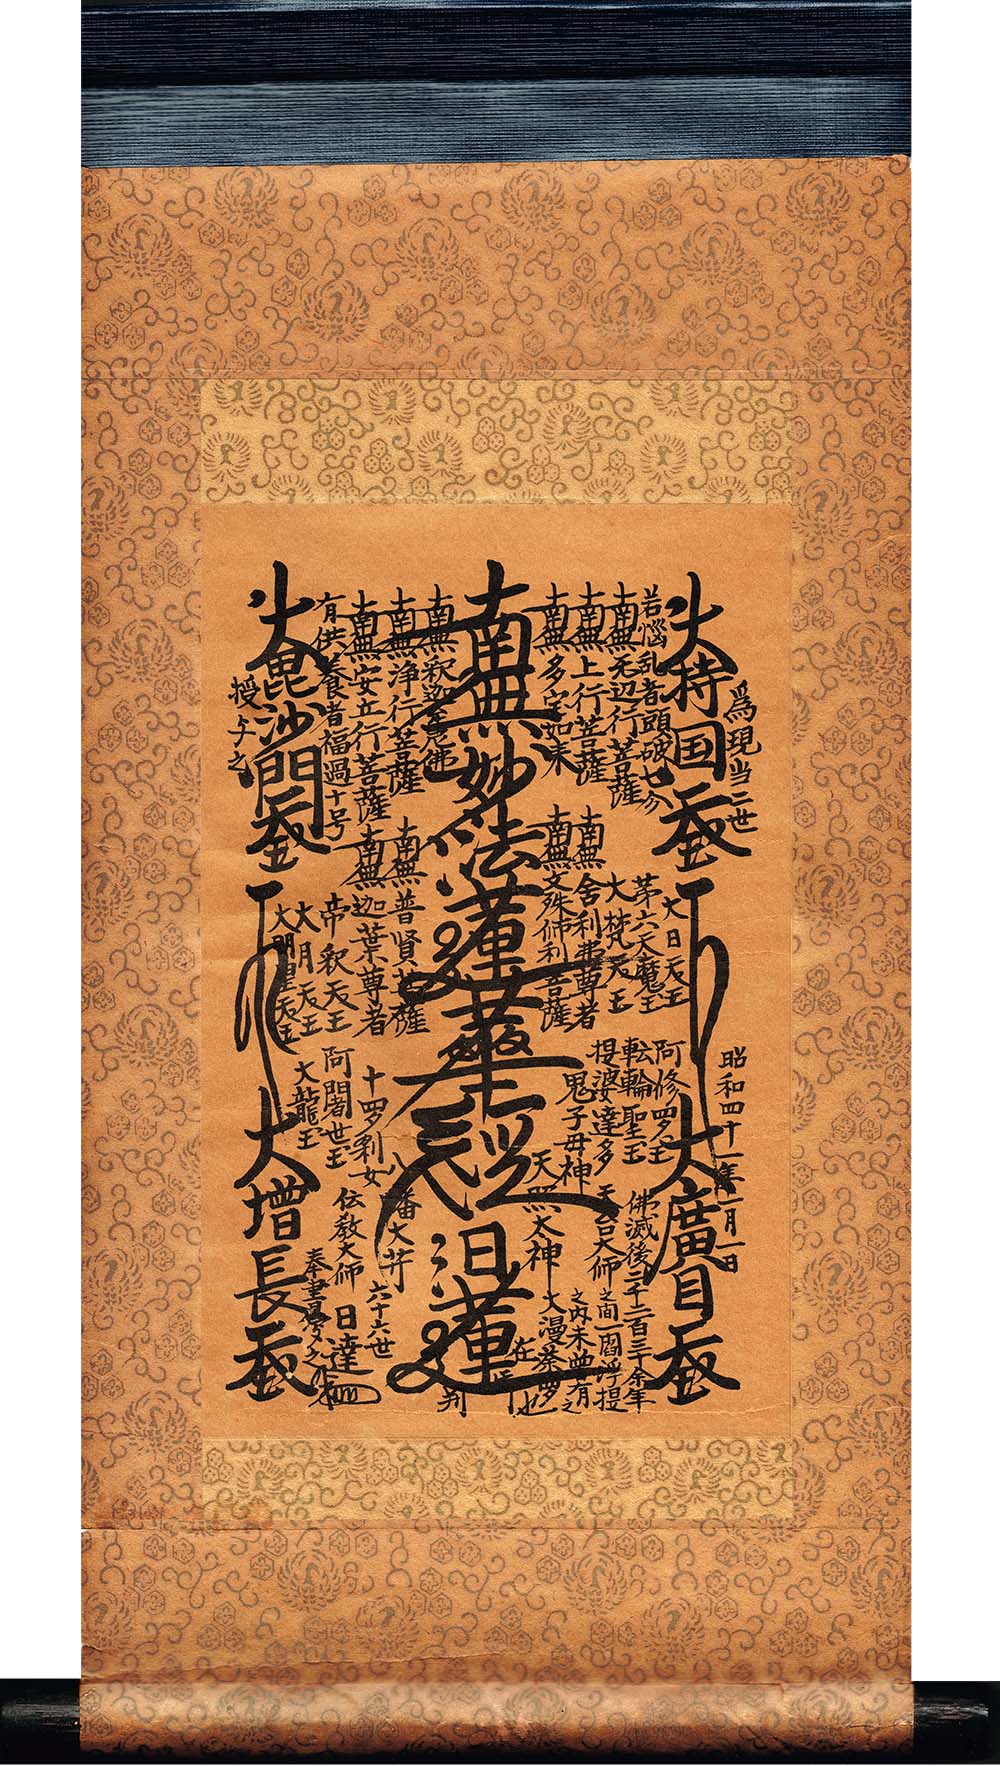 為現当二世
大持国天王
若悩乱者頭破七分
南無无辺行菩薩
南無上行菩薩
南無多宝如来
南無妙法蓮華経
日蓮
在判
南無釈迦牟尼佛
南無浄行菩薩
南無安立行菩薩
有供養者福過十号
大毘沙門天王
授与之
大日天王
第六天魔王
大梵天王
南無舎利弗尊者
南無文殊師利菩薩
南無普賢菩薩
南無迦葉尊者
帝釈天王
大月天王
大明星天王
昭和四十一年一月一日
大廣目天王
阿修羅王
転輪聖王
提婆達多
鬼子母神
天照太神
天台大师
八幡大菩薩
十羅刹女
阿闍世王
大龍王
大増長天王
伝教大师
佛滅後二千二百三十余年
之間一閻浮提
之内未曽有之
大漫荼羅也
六十六世
日達
奉書寫之